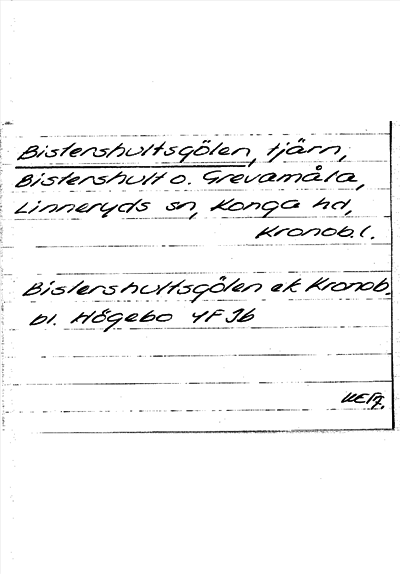 Bistershultsgölen, tjärn,
Bistershult o. Grevamåla,
Linneryds sn, Konga hd,
Kronob.l.
Bistershultsgölen ek Kronob.
bl. Högebo 4F Jb